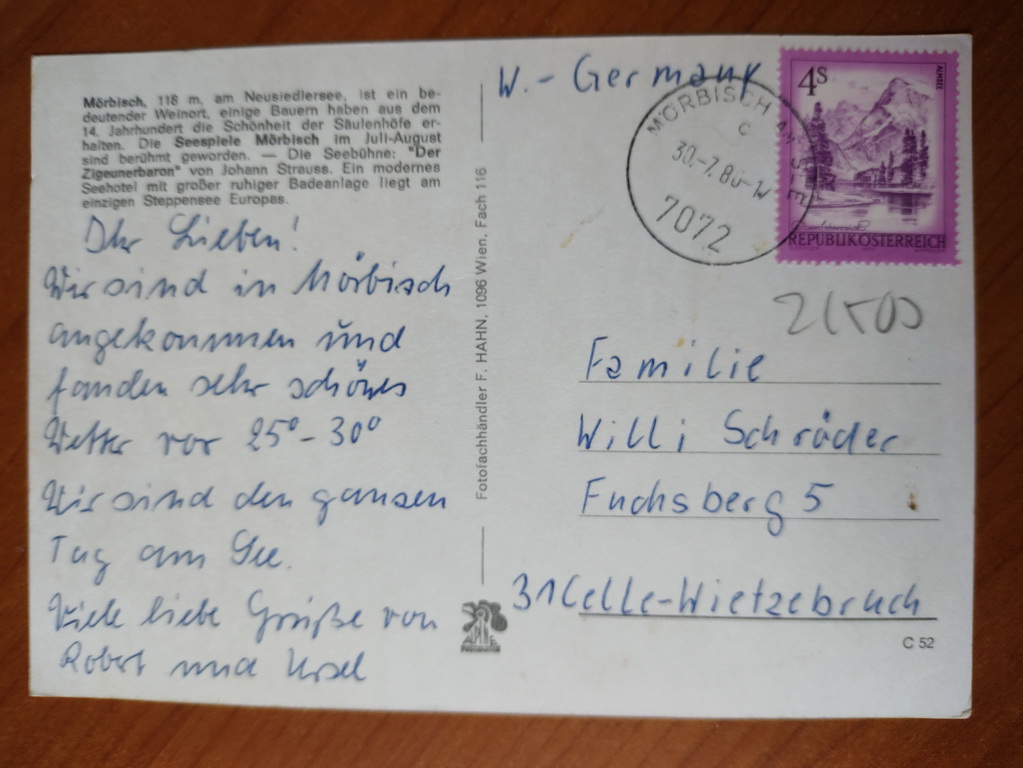 Mörbisch, 118 m, am Neusiedlersee, ist ein be-
deutender Weinort, einige Bauern haben aus dem
14. Jahrhundert die Schönheit der Säulenhöfe er-
halten. Die Seespiele Mörbisch im Juli-August
sind berühmt geworden. — Die Seebühne: "Der
Zigeunerbaron" von Johann Strauss. Ein modernes
Seehotel mit großer ruhiger Badeanlage liegt am
einzigen Steppensee Europas.
Ihr Lieben!
Wir sind in Mörbisch
angekommen und
fanden sehr schönes
Wetter vor 25° - 30°
Wir sind den ganzen
Tag am See.
Viele liebe Grüße von
Robert und Ursel
Fotofachhändler F. HAHN, 1096 Wien, Fach 116
W.- Germany
4S
ALMSEE
REPUBLIK ÖSTERREICH
MÖRBISCH AM SEE
C
30.-7.86-
7072
21500
Familie
Willi Schröder
Fuchsberg 5
31 Celle-Wietzebruch
C 52